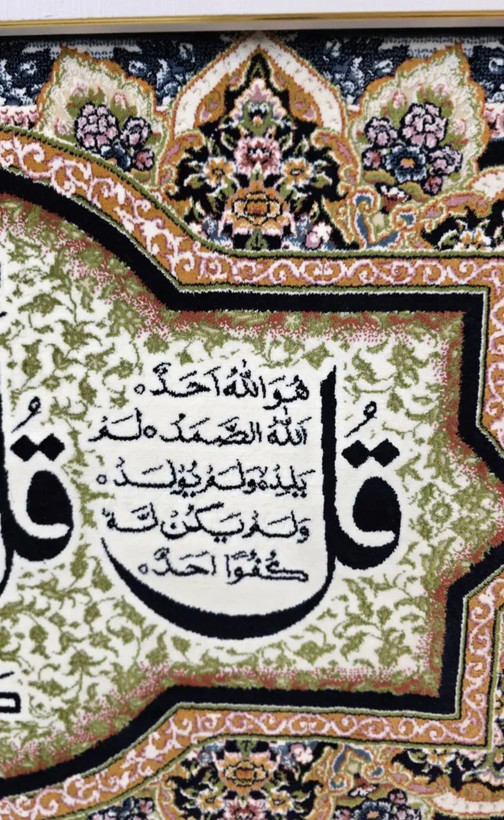 قُل
هُوَ اللهُ اَحَدٌ
اَللهُ الصَّمَدُ لَمْ
يَلِدْ وَلَمْ يُولَدْ
وَلَمْ يَكُنْ لَهُ
كُفُوًا اَحَدٌ